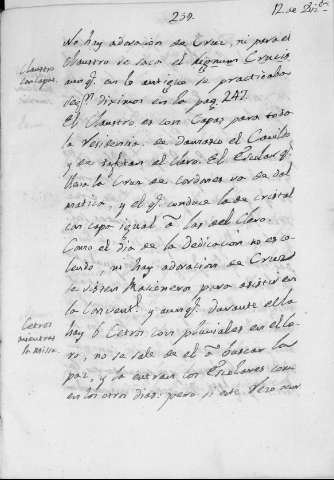 239.
12. de Dizre.
No hay adoracion de Cruz, ni para el
Claustro se saca el Lignum Crucis,
aunq. en lo antiguo se practicaba
segn. diximos en la pag. 247.
El Claustro es con Capas para toda
la residencia de damasco el Cavildo
y de tafetan el clero. El Escolar q.
lleva la Cruz de Cordones va de dal
matica, y el q. conduce la de cristal
con capa igual a las del Clero.
Como el dia de la Dedicacion no es co
lendo, ni hay adoracion de Cruz
se visten Racioneros para asistir en
la Conventl. y aunq. durante ella
hay 6 Cetros con pluviales en el Co
ro, no se sale de el a buscar la
paz, y la entran los Escolares como
en los otros dias: pero si este rezo
Claustro
con Capas
Cetros
mientras
la Missa.